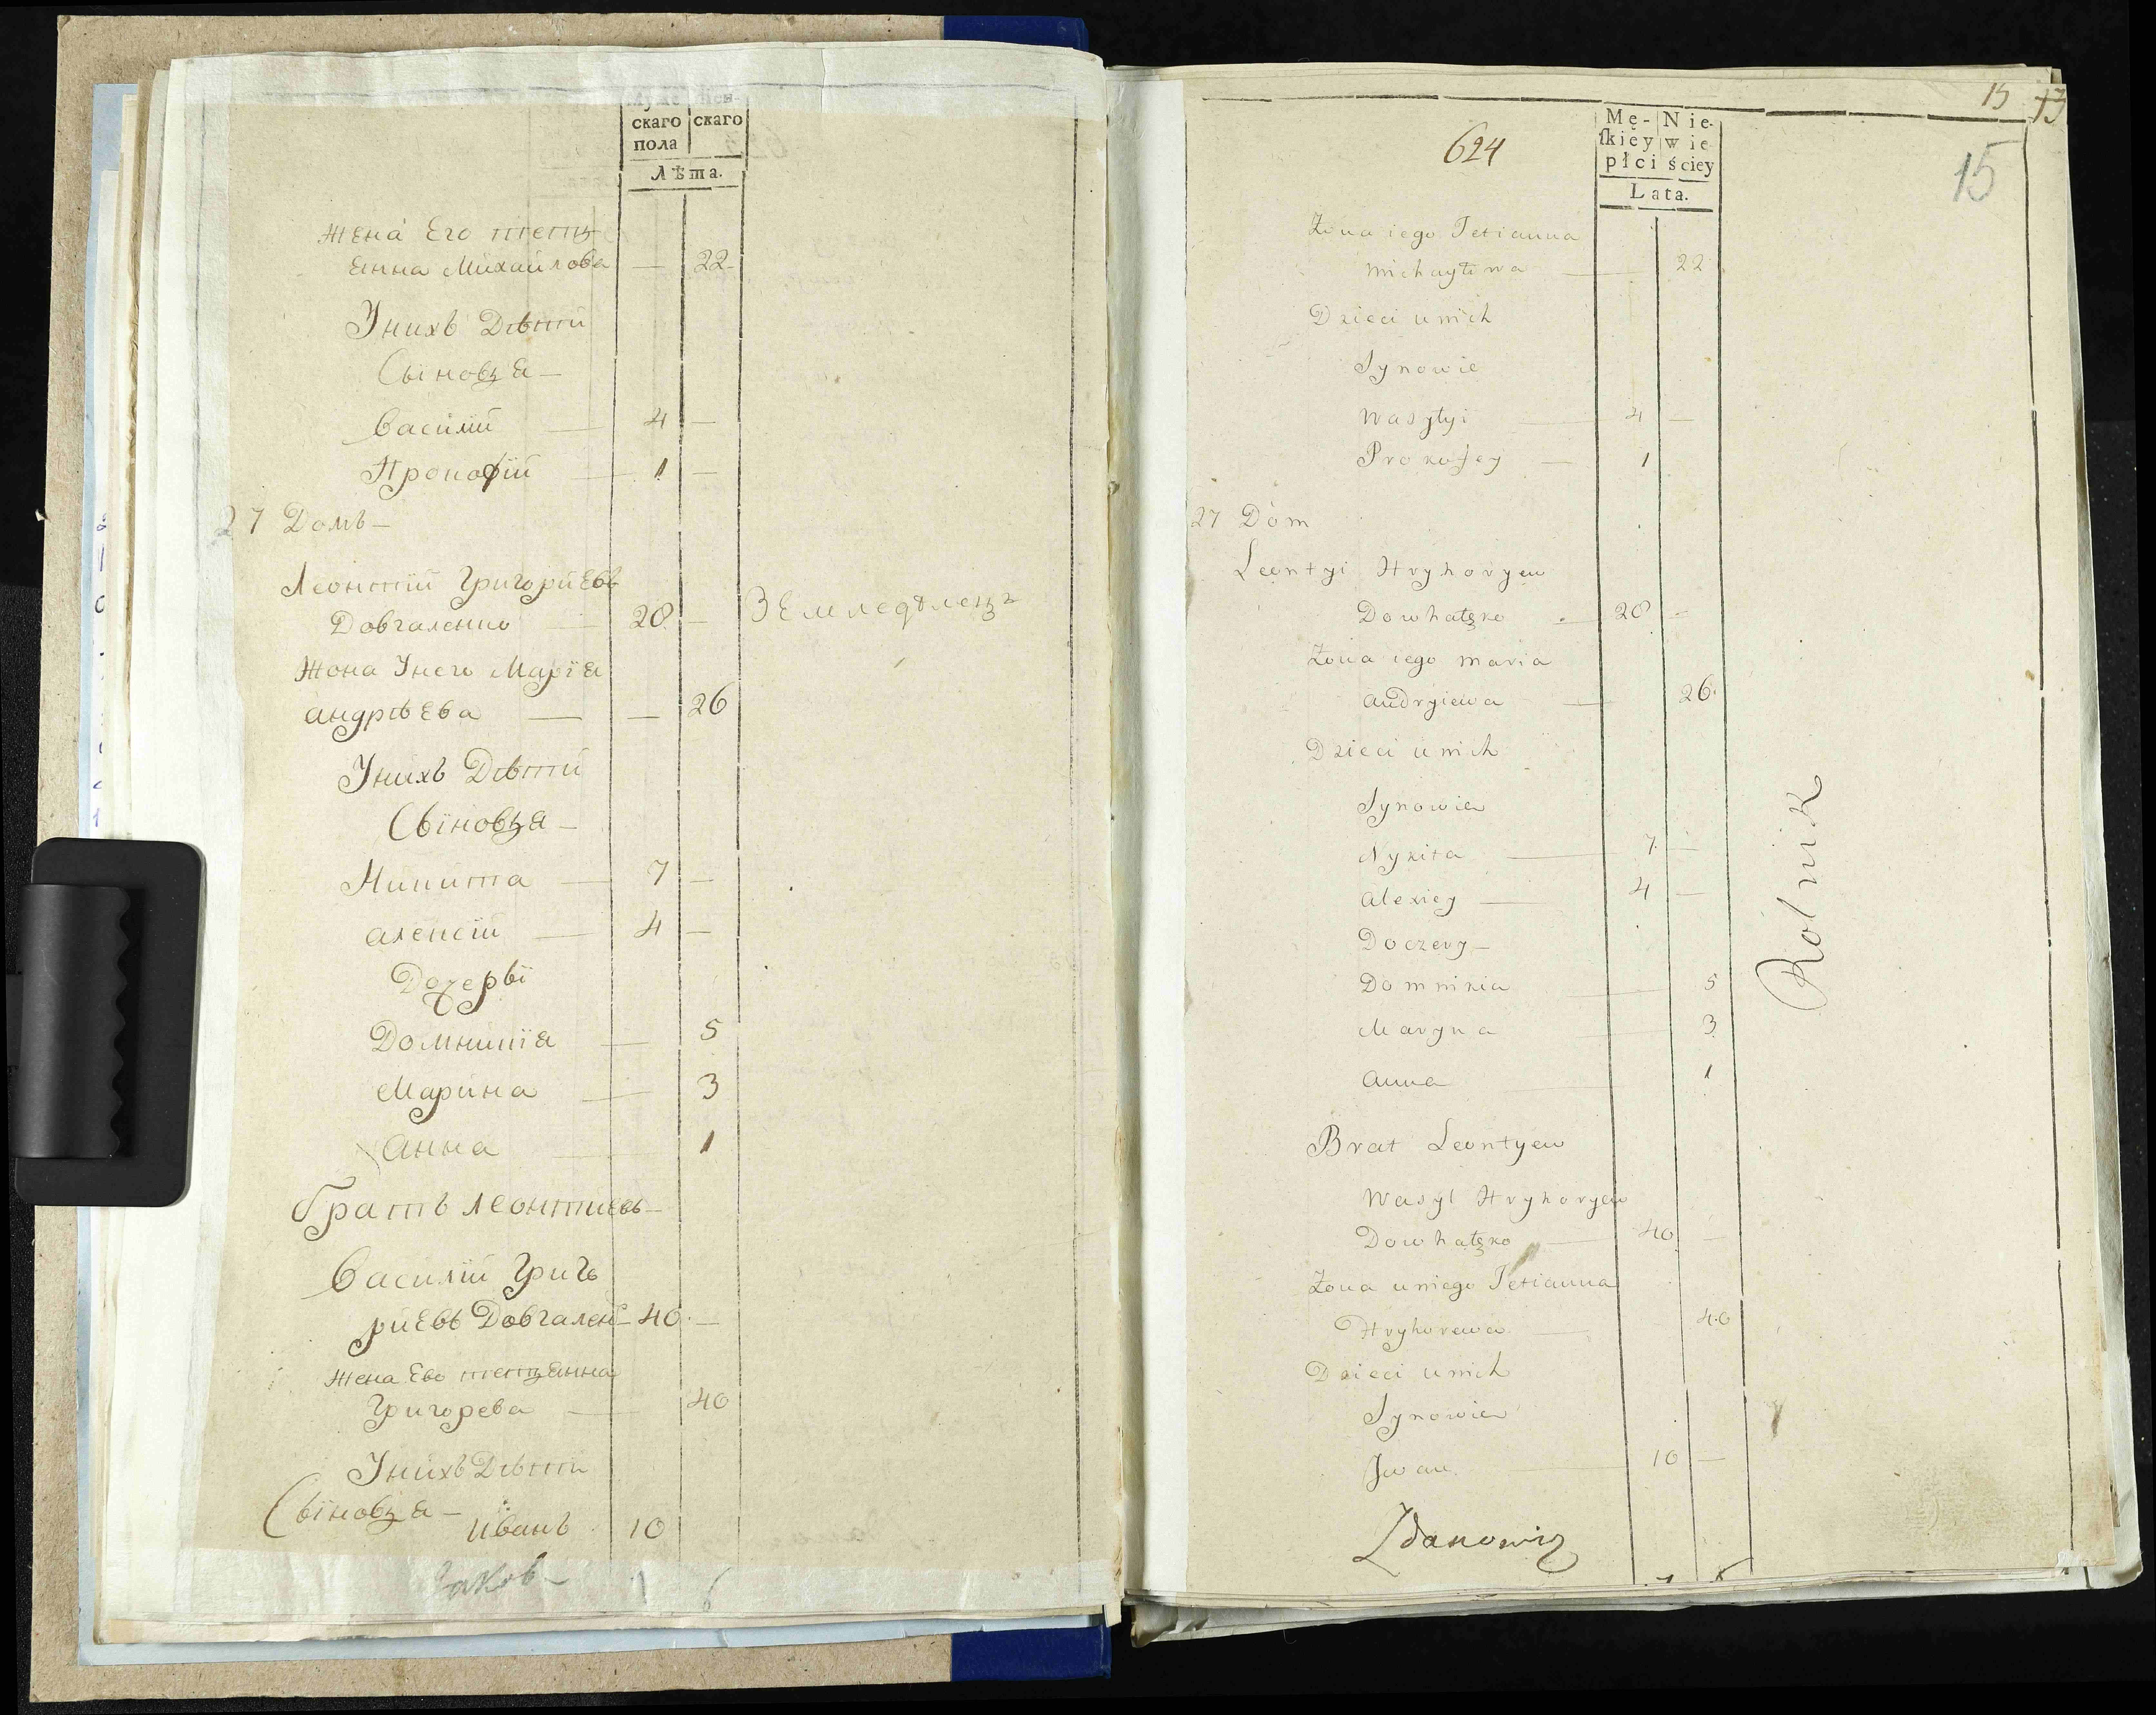 скаго скаго
пола
Лѣта.
Жена Его тетя
енна Михайлова — 22
Унихъ Дѣти
Сыновья —
Василий — 4 —
Прокофій — 1 —
27 Домъ —
Леонтій Григорйевъ
Довгаленко — 28 — Земледѣлецъ
Жона Унего Марія
андрѣева — — 26
Унихъ Дѣти
Сыновья —
Никита — 7 —
алексій — 4 —
Дочеры
Домникія — 5
Марина — 3
Анна — 1
братъ леонтиевъ —
Василий Григо
рйевъ Довгален 40 —
Жена Ево тетянна
Григорева — 40
Унихъ Дѣти
Сыновья —
Иванъ 10
Яковъ 1
15 13
15
624
Mę- Nie-
ſkiéy wie
płci ściey
Lata.
Żona iego Tetianna
michayłowa — 22
Dzieci unich
Synowie
Wasyłyi — 4 —
Prokofey — 1
27 Dóm
Leontyi Hryhoryew
Dowhalęko — 28 —
Żona iego maria
andryiewa — 26
Dzieci unich
Synowie
Nykita — 7 —
alexiey — 4 —
Doczery —
Domnikia — 5
Maryna — 3
anna — 1
Rolnik
Brat Leontyew
Wasyl Hryhoryew
Dowhalęko — 40 —
Żona uniego Tetianna
Hryhorewa — 40
Dzieci unich
Synowie
Jwan — 10 —
Zdanowicz